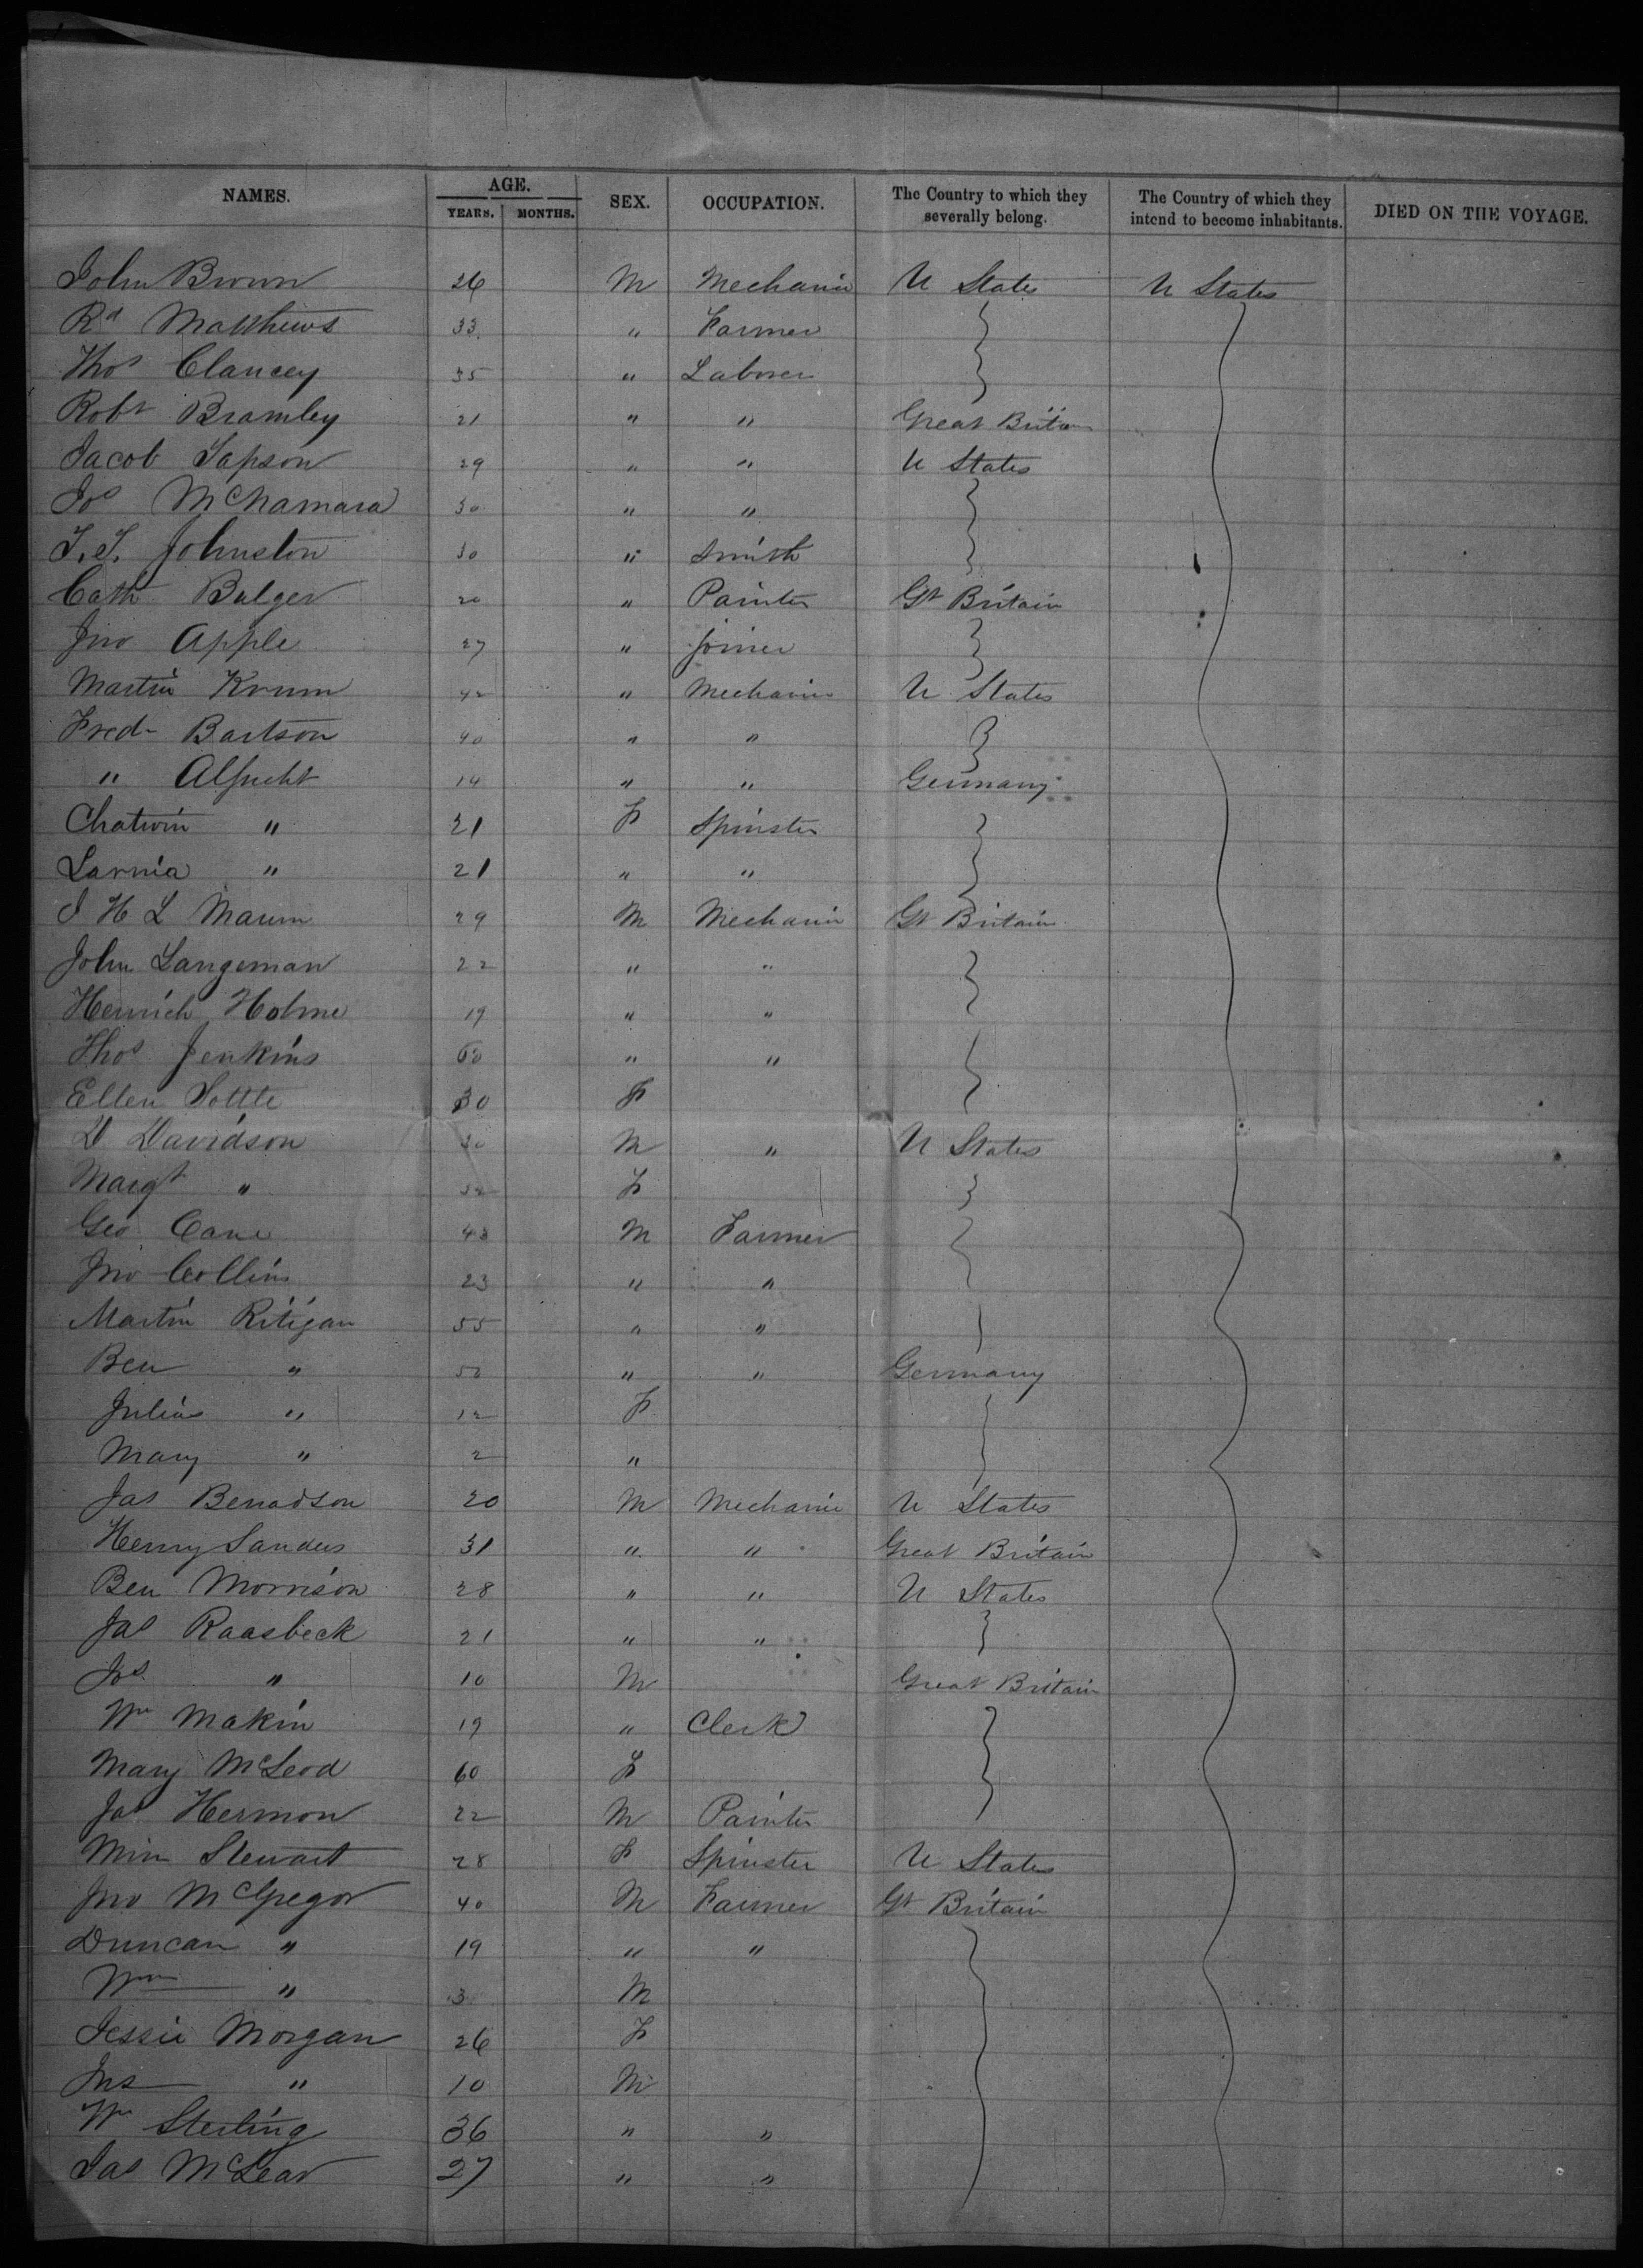 NAMES. AGE. SEX. OCCUPATION. The Country to which they severally belong. The Country of which they intend to become inhabitants. DIED ON THE VOYAGE.
YEARS. MONTHS.
John Brown 26 M Mechanic U States U States
Rd Matthews 33 " Farmer
Thos Clancey 35 " Laborer
Robt Bramley 21 " " Great Britain
Jacob Sapson 29 " " U States
Jos McNamara 30 " "
T. S. Johnston 30 " Smith
Cath Bulger 20 " Painter Gt Britain
Jno Apple 27 " Joiner
Martin Krum 42 " Mechanic U States
Fred Bartson 40 " "
" 14 " " Germany
Chatwin " 21 F Spinster
Larnia " 21 " "
J H L Maum 29 M Mechanic Gt Britain
John Langeman 22 " "
Henrich Holme 19 " "
Thos Jenkins 60 " "
Ellen Sottle 30 F
D Davidson 30 M " U States
Margt " 32 F
Geo Cane 43 M Farmer
Jno Collins 23 " "
Martin Ritigan 55 " "
Ben " 50 " " Germany
Julias " 12 F
Mary " 2 "
Jas Benadson 20 M Mechanic U States
Henry Sanders 31 " " Great Britain
Ben Morrison 28 " " U States
Jas Raasbeck 21 " "
Jos " 10 M Great Britain
Wm Makin 19 " Clerk
Mary McLeod 60 F
Jas Hermon 22 M Painter
Min Stewart 28 F Spinster U States
Jno McGregor 40 M Farmer Gt Britain
Duncan " 19 " "
Wm " 3 M
Jessie Morgan 26 F
Jas " 10 M
Wm Sterling 36 " "
Jas McLear 27 " "